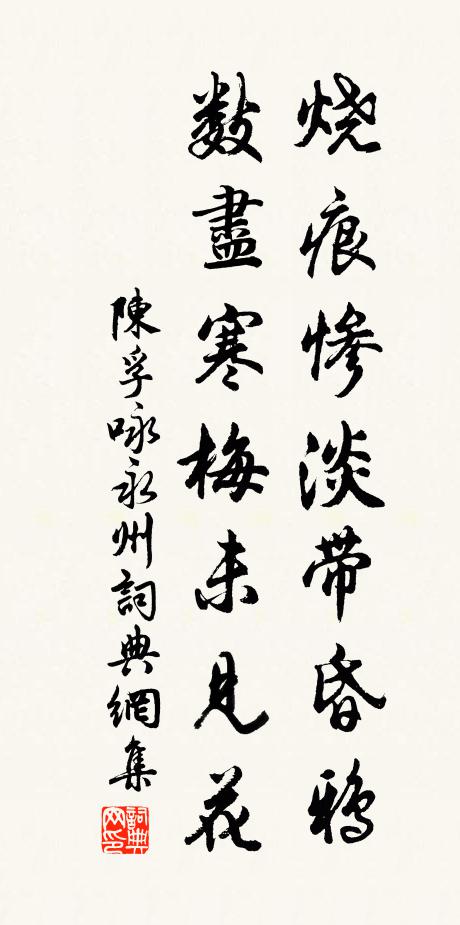 烧痕惨淡带昏鸦
数盡寒梅未見花
陳孚咏永州詞典網集
詞典网印